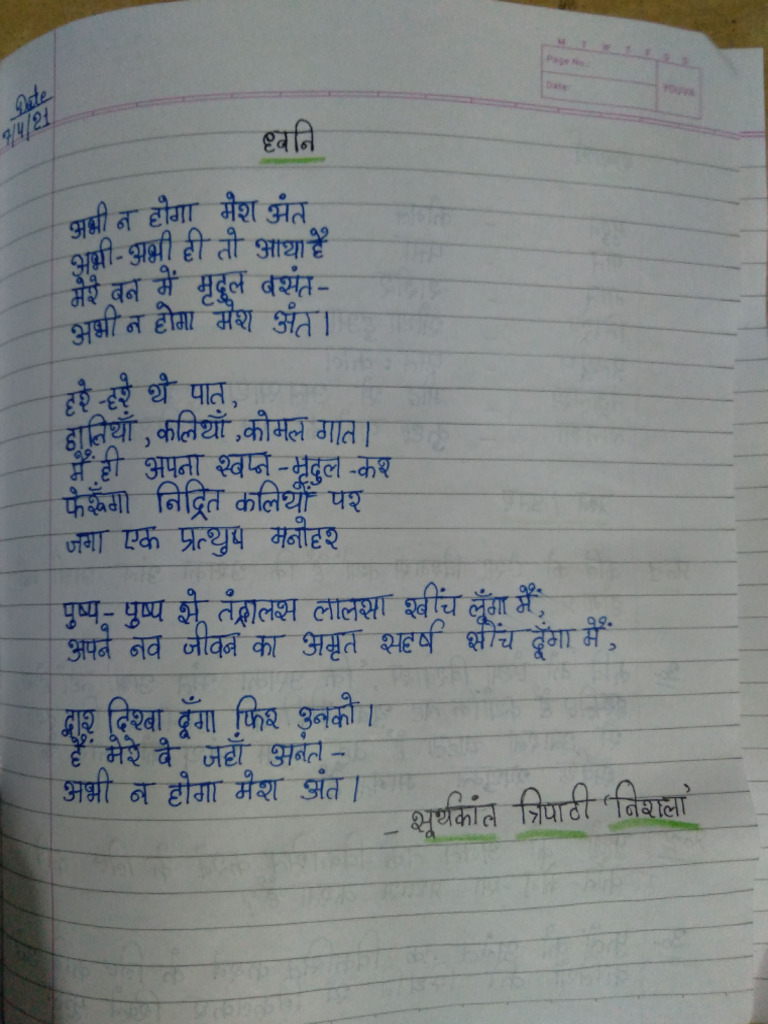 M T W T F S S
Page No.:
Date:
YOUVA
Date
7/4/21
ध्वनि
अभी न होगा मेरा अंत
अभी-अभी ही तो आया है
मेरे वन में मृदुल वसंत-
अभी न होगा मेरा अंत।
हरे-हरे ये पात,
डालियाँ, कलियाँ, कोमल गात।
मैं ही अपना स्वप्न-मृदुल-कर
फेरूँगा निद्रित कलियों पर
जगा एक प्रत्युष मनोहर
पुष्प-पुष्प से तंद्रालस लालसा खींच लूँगा मैं,
अपने नव जीवन का अमृत सहर्ष सींच दूँगा मैं,
द्वार दिखा दूँगा फिर उनको।
हैं मेरे वे जहाँ अनंत-
अभी न होगा मेरा अंत।
- सूर्यकांत त्रिपाठी 'निराला'